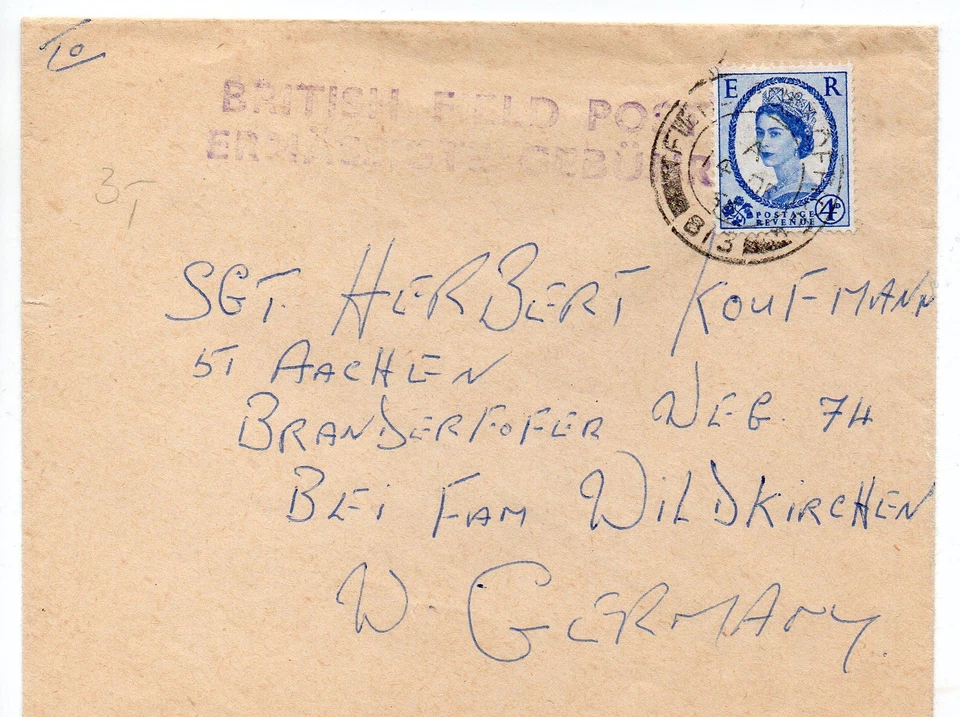 To
BRITISH FIELD POST
ERMÄSSIGTE GEBÜHR
E R
POSTAGE
REVENUE
4D
FIELD POST OFFICE
813
3/-
SGT. HERBERT KOUFMANN
51 AACHEN
BRANDERFOFER WEG. 74
BEI FAM WILDKIRCHEN
W. GERMANY.